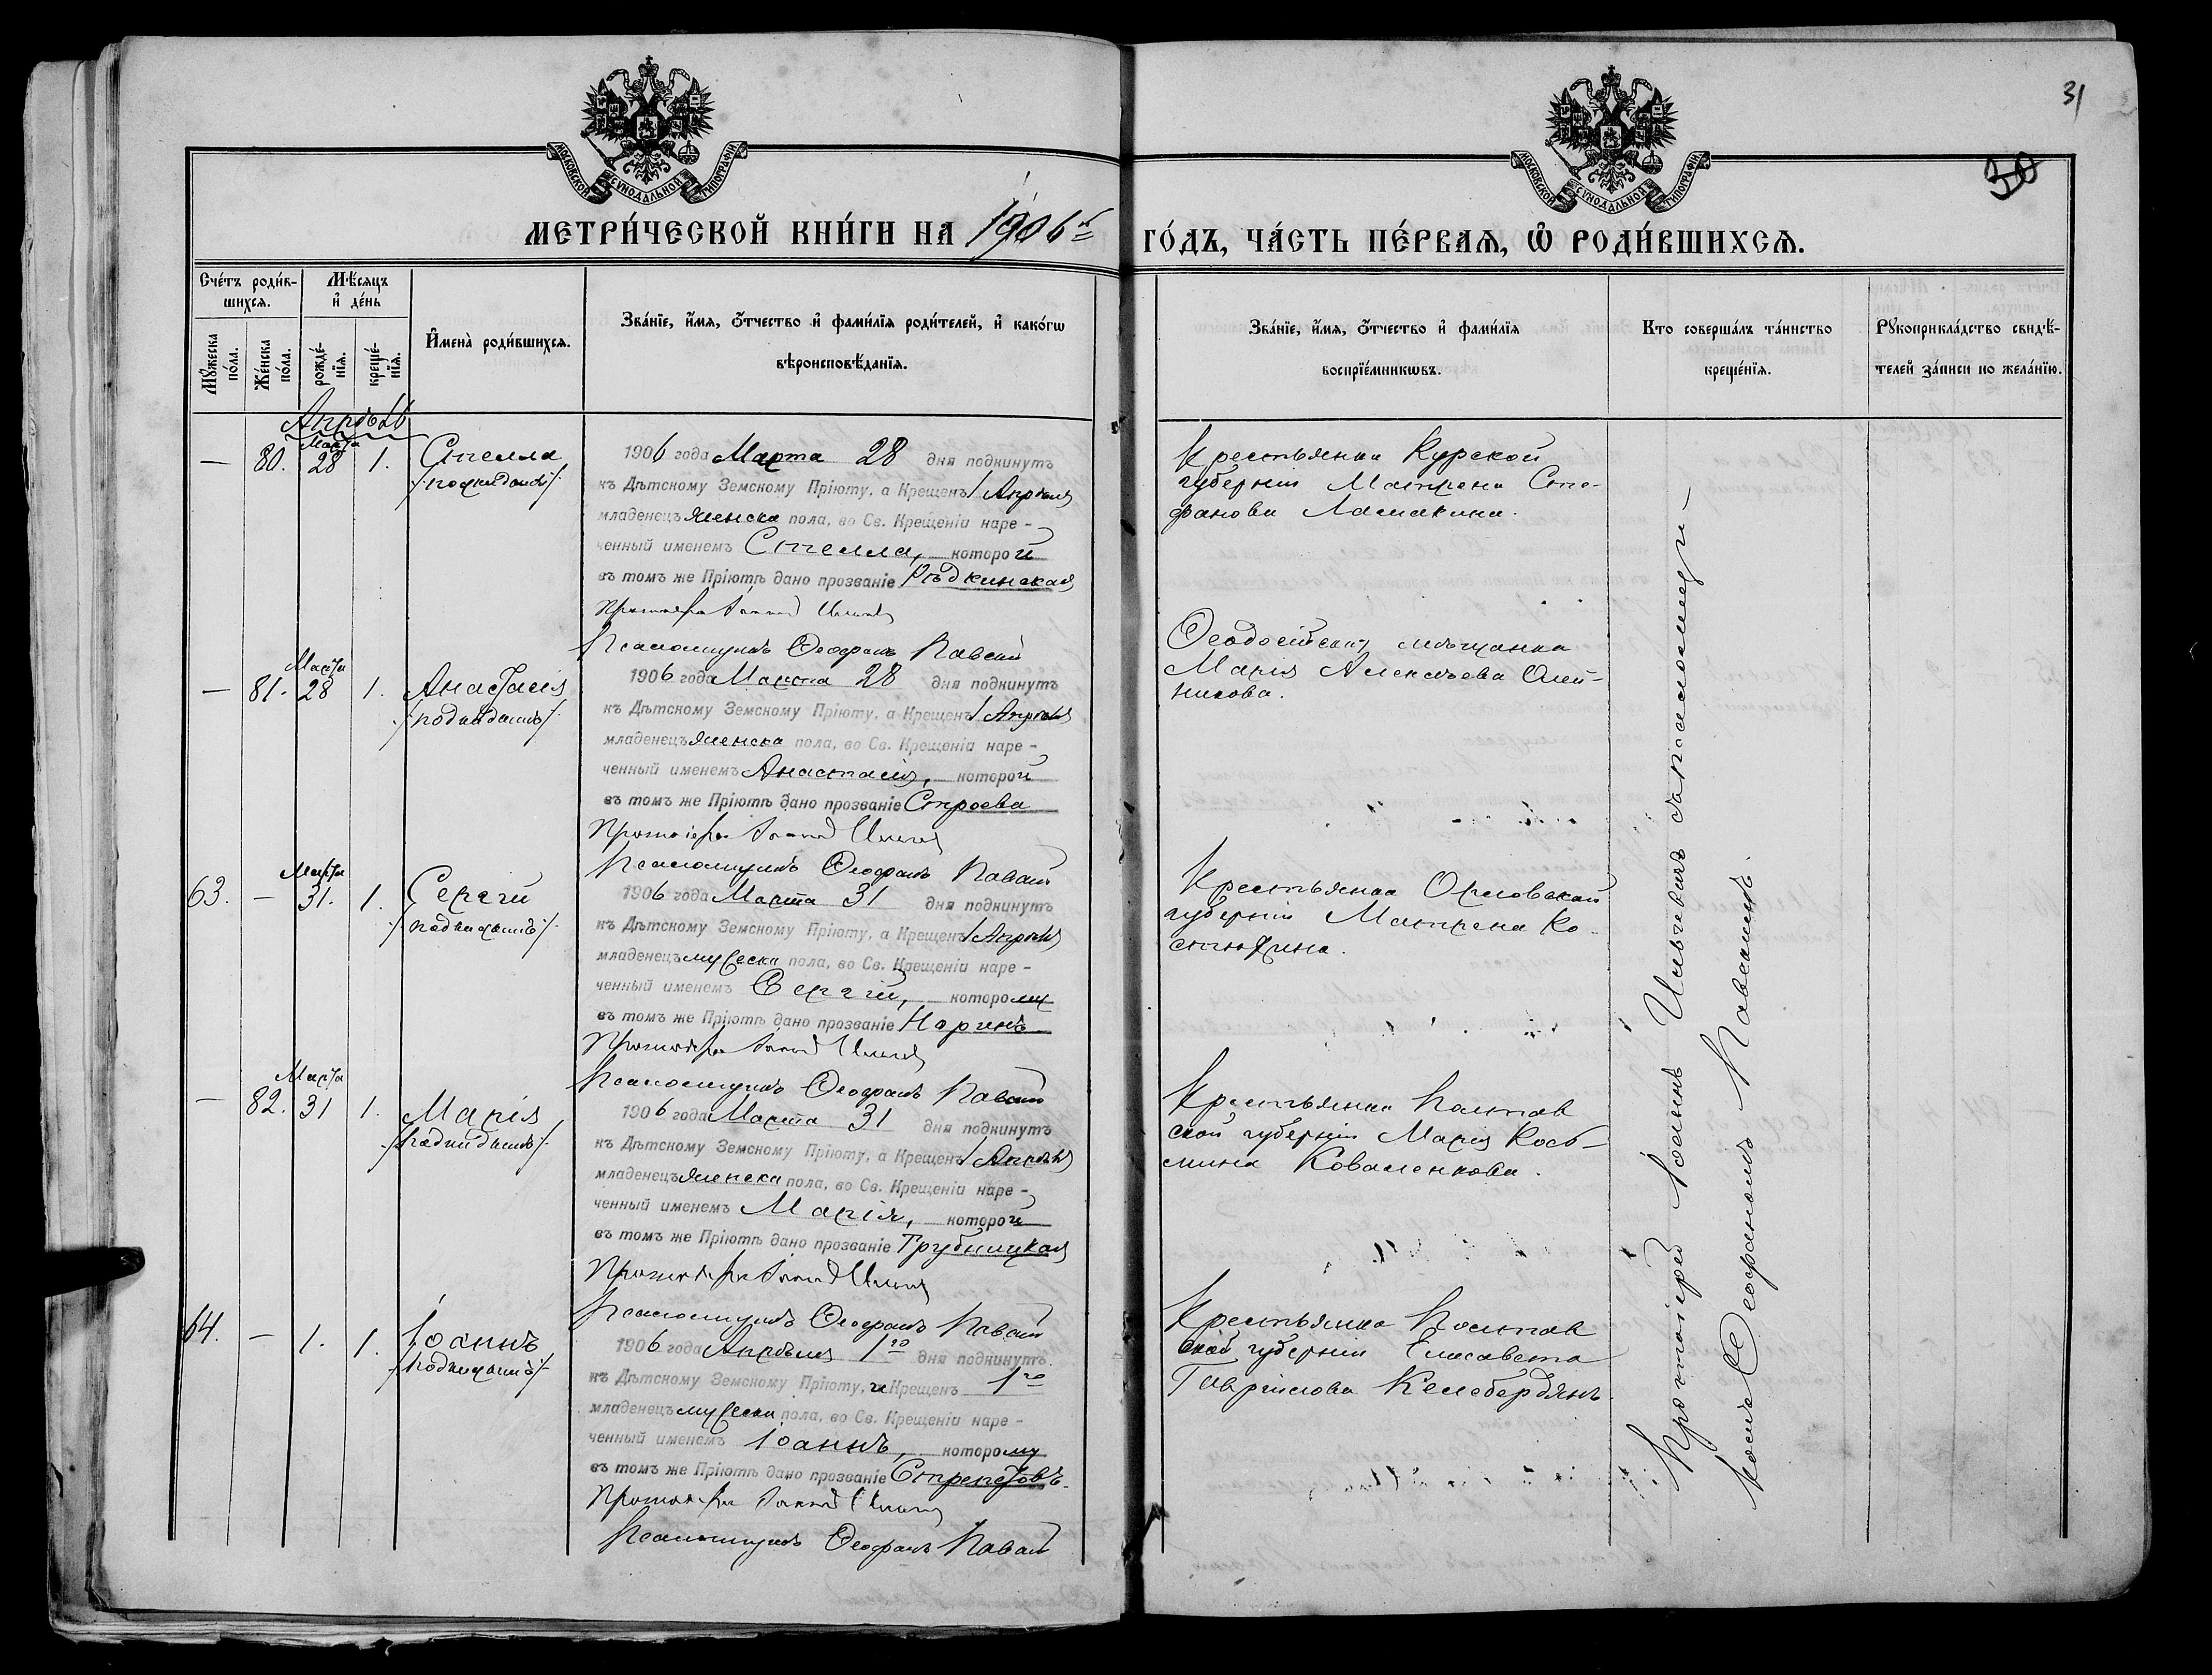 31
30
МОСКОВСКОЙ СѴНОДАЛЬНОЙ ТИПОГРАФІИ
МОСКОВСКОЙ СѴНОДАЛЬНОЙ ТИПОГРАФІИ
МЕТРИ́ЧЕСКОЙ КНИ́ГИ НА 1906й ГО́ДЪ, ЧА́СТЬ ПЕ́РВАѦ, Ѽ РОДИ́ВШИХСѦ.
Сче́тъ роди́в-
шихсѧ.
Мѣ́сѧцъ
и҆ де́нь
Мꙋ́жеска
по́ла.
Же́нска
по́ла.
рожде́-
нїѧ.
креще́-
нїѧ.
И҆мена̀ роди́вшихсѧ.
Зва́нїе, и҆́мѧ, ѻ҆́тчество и҆ фами́лїѧ роди́телей, и҆ како́гѡ
вѣроисповѣ́данїѧ.
Зва́нїе, и҆́мѧ, ѻ҆́тчество и҆ фами́лїѧ
воспрїе́мникѡвъ.
Кто соверша́лъ та́инство
креще́нїѧ.
Рꙋкоприкла́дство свидѣ́-
телей за́писи по жела́нїю.
Апрѣль
— 80. Марта 28 1. Стелла
/подкидышъ/
1906 года Марта 28 дня подкинутъ
къ Дѣтскому Земскому Пріюту, а Крещенъ 1 Апрѣля
младенецъ женска пола, во Св. Крещеніи наре-
ченный именемъ Стелла, которой
въ томъ же Пріютѣ дано прозваніе Рѣдкинская
Протоіерей Іоаннъ
Псаломщикъ Ѳеофанъ Павскій
Крестьянка Курской
губерніи Матрена Сте-
фанова Ламакина.
— 81. Марта 28 1. Анастасія
/подкидышъ/
1906 года Марта 28 дня подкинутъ
къ Дѣтскому Земскому Пріюту, а Крещенъ 1 Апрѣля
младенецъ женска пола, во Св. Крещеніи наре-
ченный именемъ Анастасія, которой
въ томъ же Пріютѣ дано прозваніе Строева
Протоіерей Іоаннъ
Псаломщикъ Ѳеофанъ Павскій
Ѳеодосійская мѣщанка
Марія Алексѣева Олей-
никова.
63. — Марта 31. 1. Сергій
/подкидышъ/
1906 года Марта 31 дня подкинутъ
къ Дѣтскому Земскому Пріюту, а Крещенъ 1 Апрѣля
младенецъ мужеска пола, во Св. Крещеніи наре-
ченный именемъ Сергій, которому
въ томъ же Пріютѣ дано прозваніе Норинъ
Протоіерей Іоаннъ
Псаломщикъ Ѳеофанъ Павскій
Крестьянка Орловской
губерніи Матрена Ко-
стюхина.
— 82. Марта 31 1. Марія
/подкидышъ/
1906 года Марта 31 дня подкинутъ
къ Дѣтскому Земскому Пріюту, а Крещенъ 1 Апрѣля
младенецъ женска пола, во Св. Крещеніи наре-
ченный именемъ Марія, которой
въ томъ же Пріютѣ дано прозваніе Трубницкая
Протоіерей Іоаннъ
Псаломщикъ Ѳеофанъ Павскій
Крестьянка Полтав
ской губерніи Марія Козь-
мина Коваленкова.
64. — 1. 1. Іоаннъ
/подкидышъ/
1906 года Апрѣля 1го дня подкинутъ
къ Дѣтскому Земскому Пріюту, и Крещенъ 1го
младенецъ мужеска пола, во Св. Крещеніи наре-
ченный именемъ Іоаннъ, которому
въ томъ же Пріютѣ дано прозваніе Стрепетовъ.
Протоіерей Іоаннъ
Псаломщикъ Ѳеофанъ Павскій
Крестьянка Полтав
ской губерніи Елисавета
Гавриилова Келебердянъ.
Протоіерей Іоаннъ съ псаломщи-
комъ Ѳеофаномъ Павскимъ.